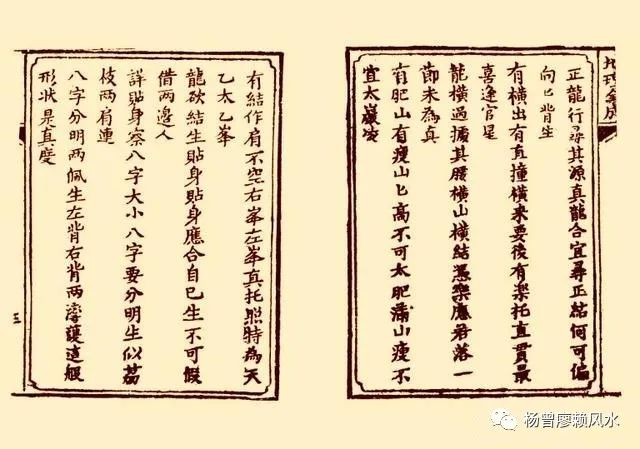 正龍行尋其源真龍合宜尋正結何可偏
向匕背生
有橫出有直撞橫来要後有樂托直貫最
喜逢官星
龍橫過據其腰橫山橫結憑樂應若落一
節未為真
有肥山有瘦山匕高不可太肥滿山瘦不
宜太巖
有結作肩不空右峯左峯真托照特為天
乙太乙峯
龍欲結生貼身貼身應合自己生不可假
借兩邊人
詳貼身察八字大小八字要分明生似荔
枝兩肩連
八字分明兩佩生左背右背兩護這般
形状是真度
三
杨曾廖赖风水